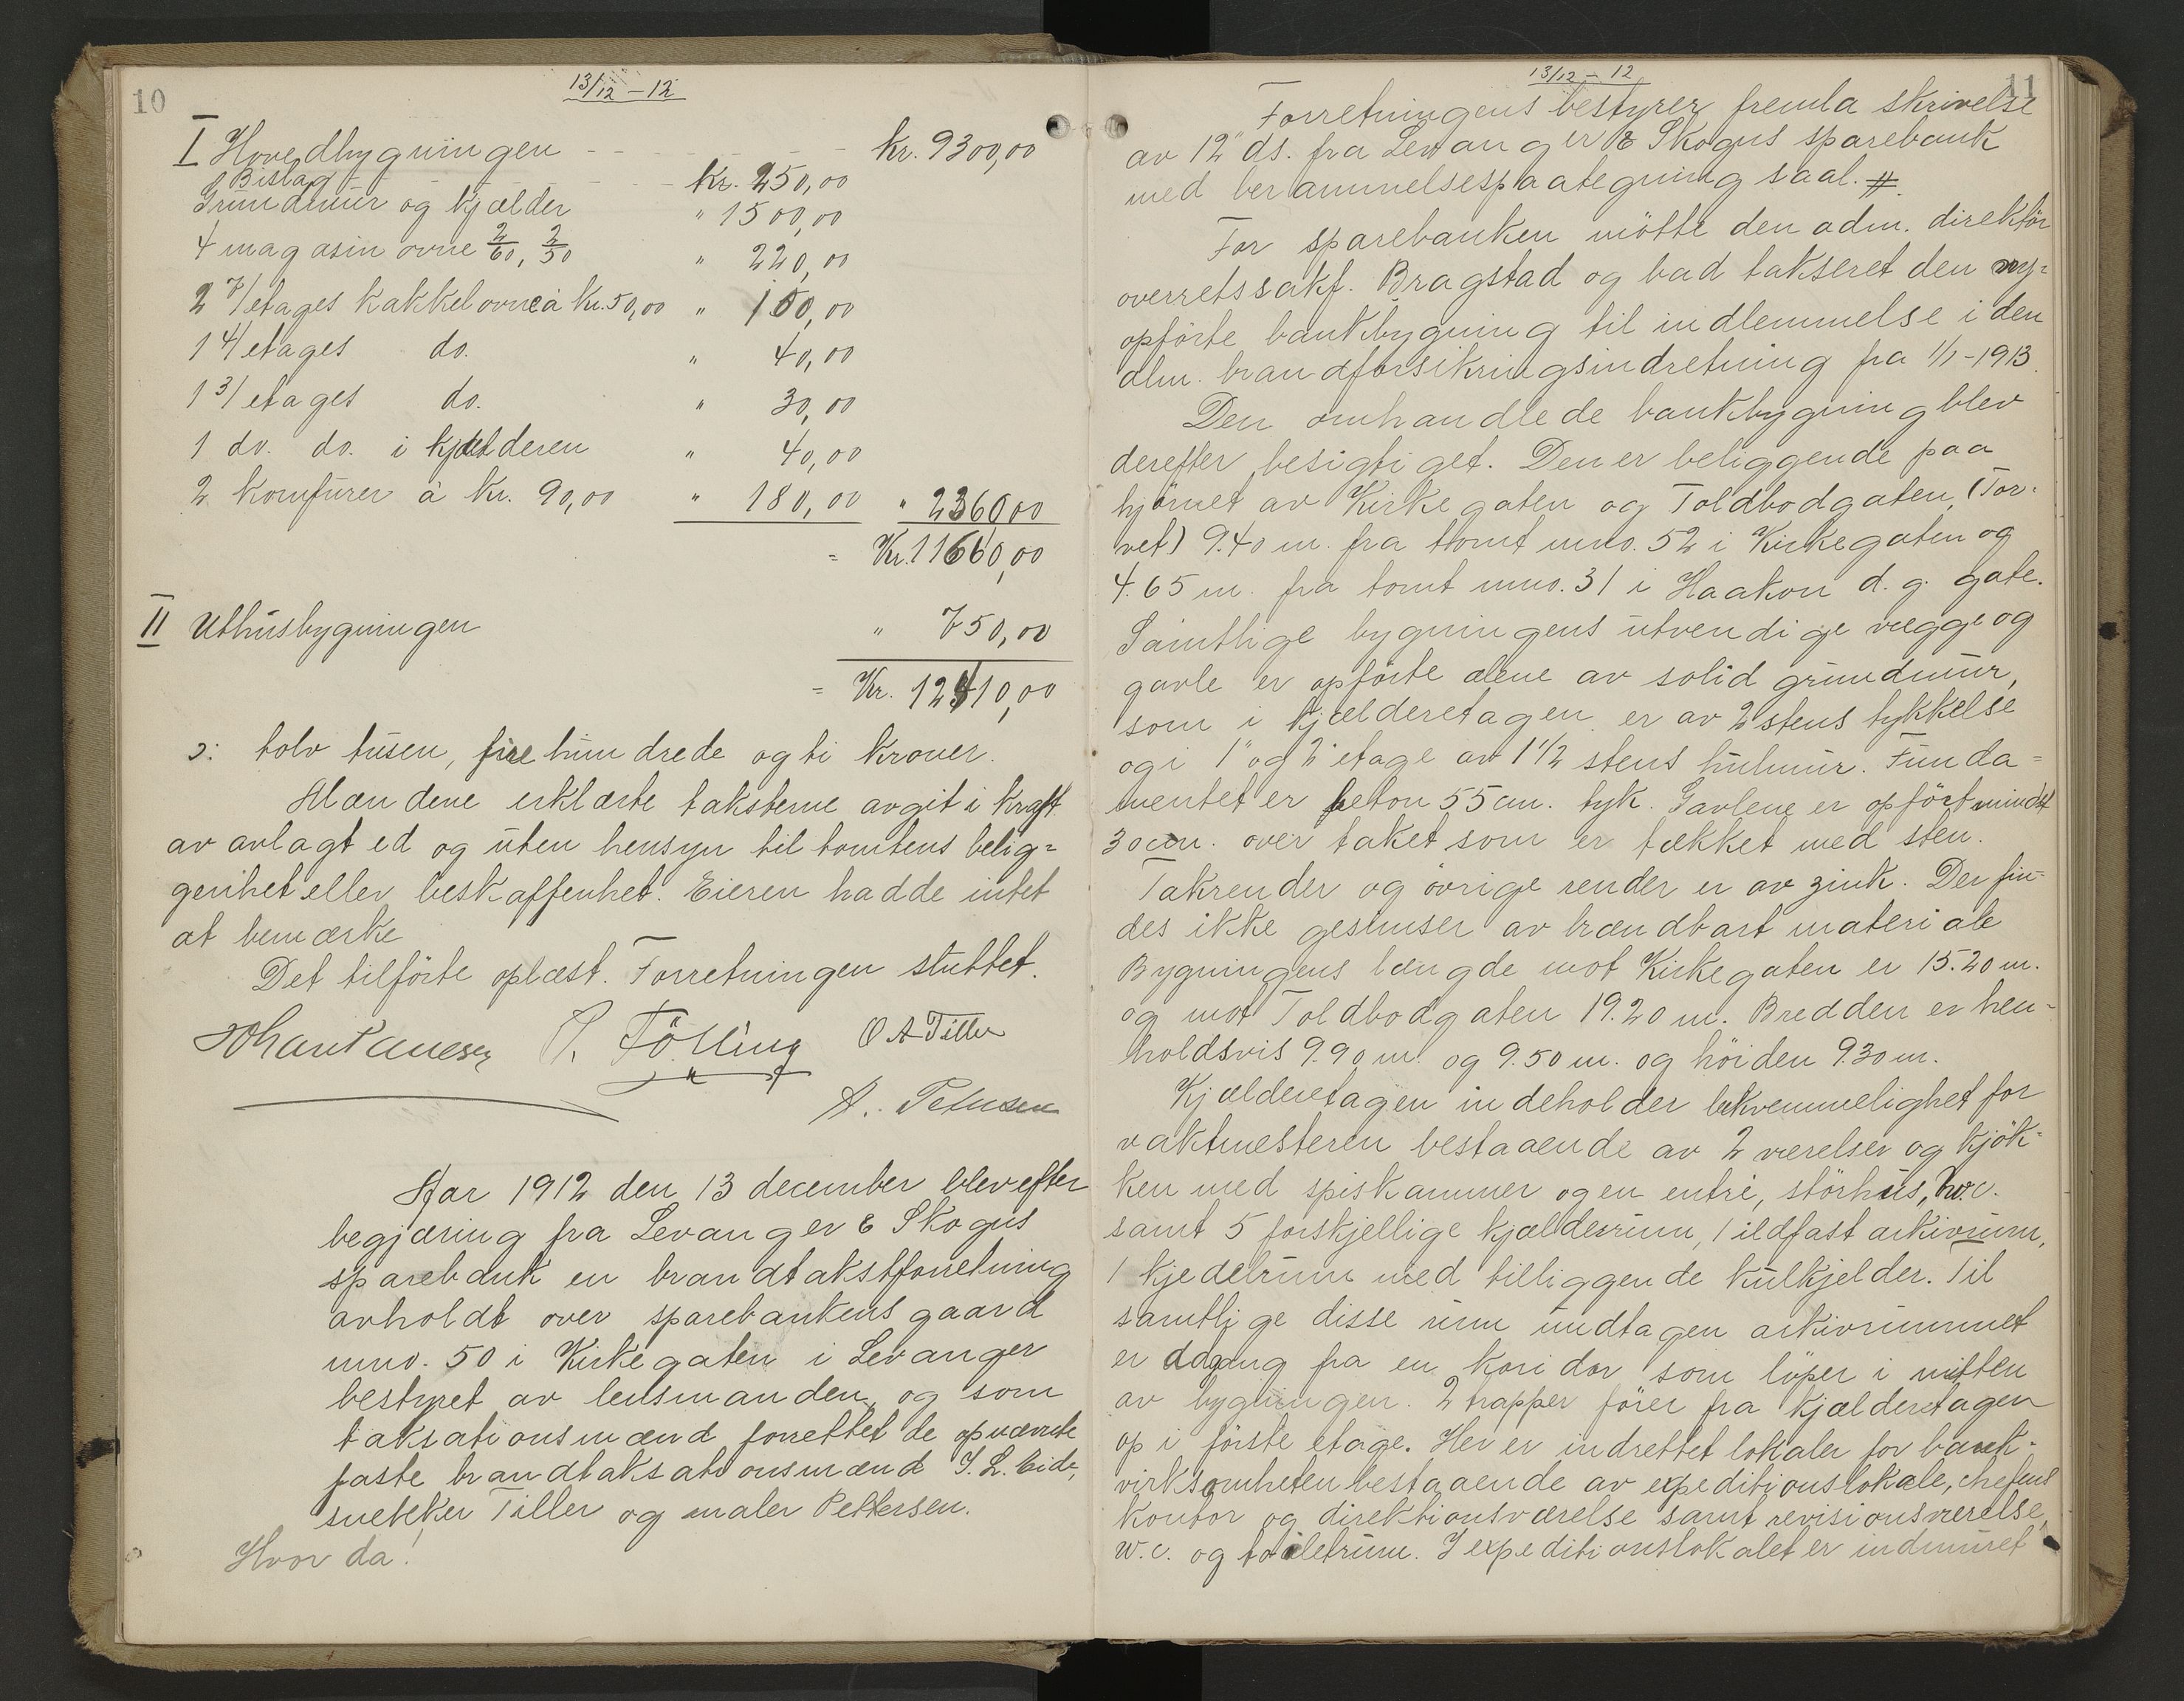 10
13/12 - 12
I Hovedbygningen - - - - kr. 9300,00
1 Bislag - - - kr. 250,00
Grundmur og kjælder " 1500,00
4 magasin ovne 2/60, 2/50 " 220,00
2 2/etages kakkelovne à kr. 50,00 " 100,00
1 4/etages do. " 40,00
1 3/etages do. " 30,00
1 do. do. i kjælderen " 40,00
2 komfurer à kr. 90,00 " 180,00 " 2360,00
= Kr. 11660,00
II Uthusbygningen " 750,00
= Kr. 12410,00
ɔ: tolv tusen, fire hundrede og ti kroner.
Mændene erklærte taksterne avgit i kraft
av avlagt ed og uten hensyn til tomtens belig=
genhet eller beskaffenhet. Eieren hadde intet
at bemærke
Det tilförte oplæst. Forretningen sluttet.
O A Tiller
A. Petersen
Aar 1912 den 13 december blev efter
begjæring fra Levanger & Skogns
sparebank en brandtakstforretning
avholdt over sparebankens gaard
mno. 50 i Kirkegaten i Levanger
bestyret av lensmanden, og som
taksationsmænd forrettet de opnævnte
faste brandtaksationsmænd J. L. Eide,
snekker Tiller og maler Pettersen.
Hvor da!
11
13/12 - 12
Forretningens bestyrer fremla skrivelse
av 12" ds. fra Levanger & Skogns sparebank
med berammelsespaategning saal. #
For sparebanken mötte den adm. direktör
overretssakf. Bragstad og bad takseret den ny=
opförte bankbygning til indlemmelse i den
alm. brandforsikringsindretning fra 1/1-1913.
Den omhandlede bankbygning blev
derefter besigtiget. Den er beliggende paa
hjörnet av Kirkegaten og Toldbodgaten (Tor-
vet) 9.40 m. fra tomt mno. 52 i Kirkegaten og
4.65 m. fra tomt mno. 31 i Haakon d. g. gate.
Samtlige bygningens utvendige vægge og
gavle er opförte alene av solid grundmur,
som i kjælderetagen er av 2 stens tykkelse
og i 1" og 2" etage av 1 1/2 stens hulmur. Funda=
mentet er beton 55 cm. tyk. Gavlene er opfört mindst
30 cm. over taket som er tækket med sten.
Takrender og övrige render er av zink. Der fin-
des ikke gesimser av brændbart materiale
Bygningens længde mot Kirkegaten er 15.20 m.
og mot Toldbodgaten 19.20 m. Bredden er hen-
holdsvis 9.90 m. og 9.50 m. og höiden 9.30 m.
Kjælderetagen indeholder bekvemmelighet for
vaktmesteren bestaaende av 2 værelser og kjök-
ken med spiskammer og en entré, störhus, w.c.
samt 5 forskjellige kjælderrum, 1 ildfast arkivrum,
1 kjedelrum med tilliggende kulkjelder. Til
samtlige disse rum undtagen arkivrummet
er adgang fra en koridor som löper i mitten
av bygningen. 2 trapper förer fra kjælderetagen
op i förste etage. Her er indrettet lokaler for bank-
virksomheten bestaaende av expeditionslokale, chefens
kontor og direktionsværelse samt revisionsværelse,
w.c. og toiletrum. I expeditionslokalet er indmuret